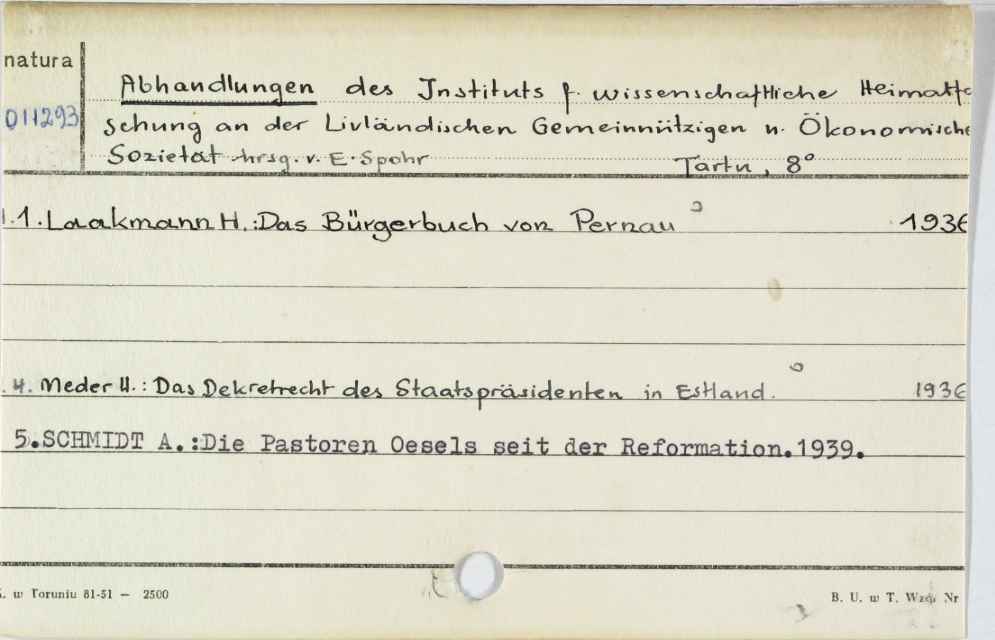 natura
011293
Abhandlungen des Instituts f. wissenschaftliche Heimatfo
schung an der Livländischen Gemeinnützigen u. Ökonomische
Sozietät hrsg. v. E. Spohr Tartu, 8°
1. Laakmann H.: Das Bürgerbuch von Pernau 1936
4. Meder U.: Das Dekretrecht des Staatspräsidenten in Estland. 1936
5.SCHMIDT A.:Die Pastoren Oesels seit der Reformation.1939.
. w Toruniu 81-51 — 2500
B. U. w T. Nr